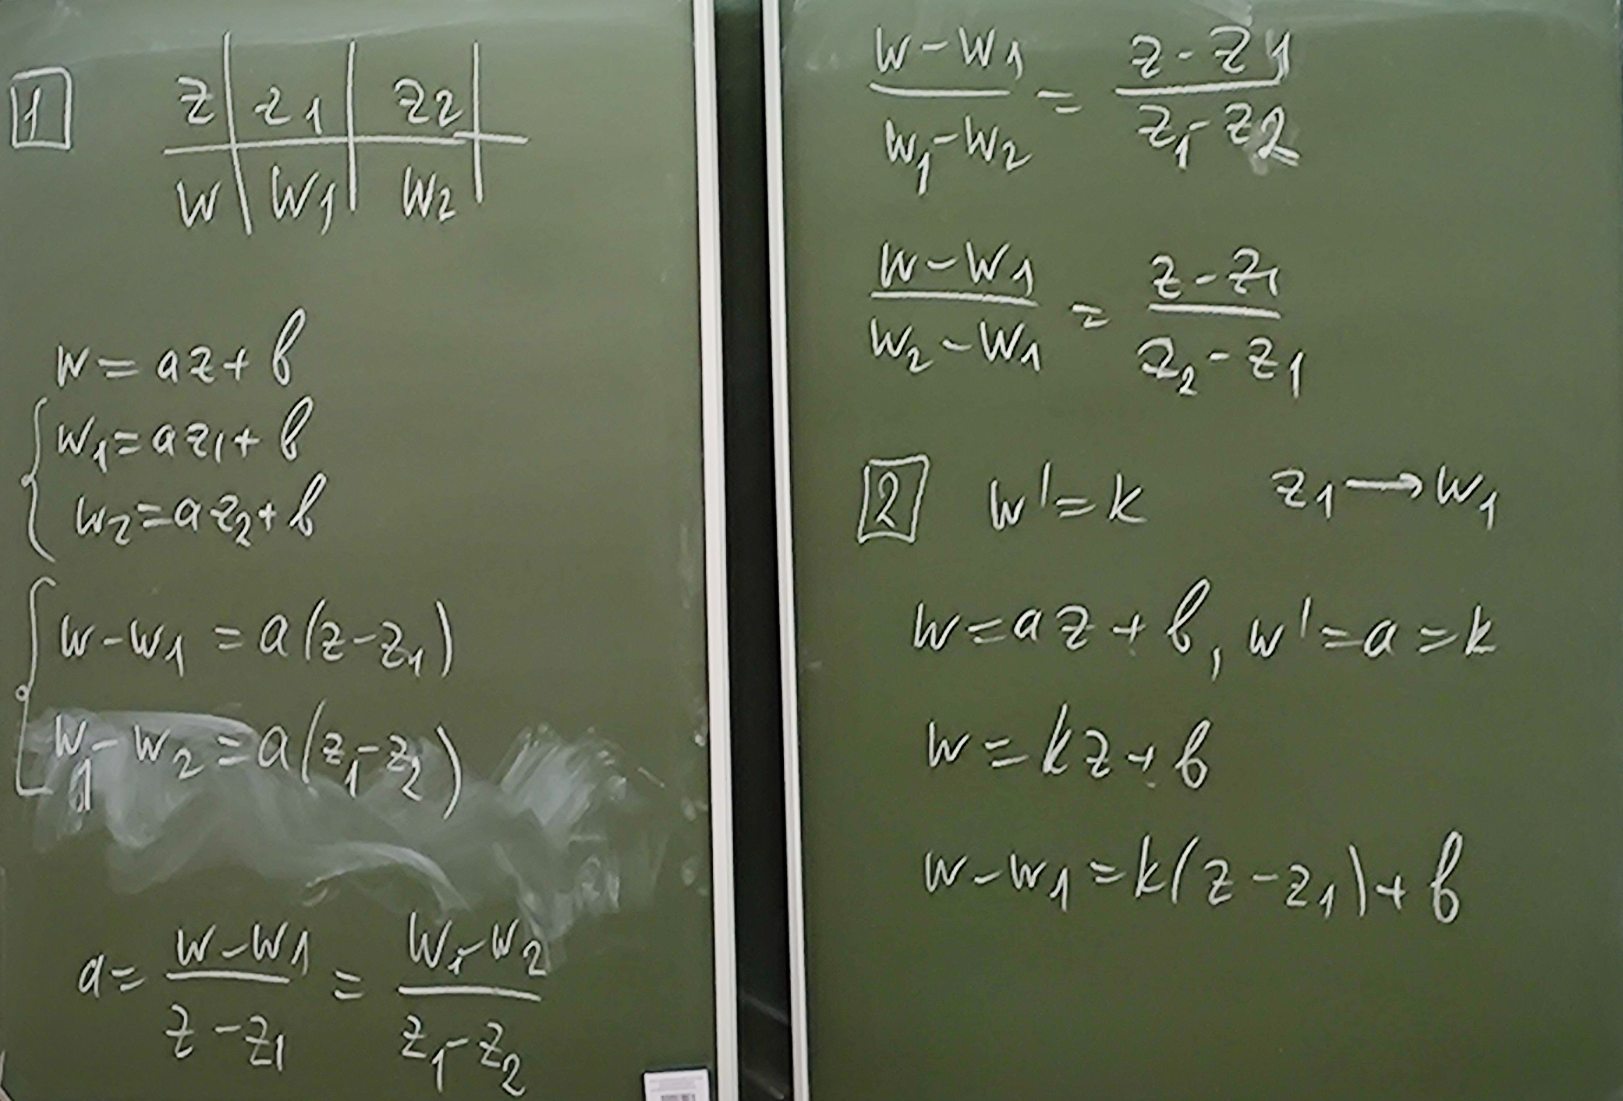 1
z | z1 | z2
w | w1 | w2
w = az + b
w1 = az1 + b
w2 = az2 + b
w - w1 = a(z - z1)
w1 - w2 = a(z1 - z2)
a = (w - w1)/(z - z1) = (w1 - w2)/(z1 - z2)
(w - w1)/(w1 - w2) = (z - z1)/(z1 - z2)
(w - w1)/(w2 - w1) = (z - z1)/(z2 - z1)
2 w' = k z1 → w1
w = az + b, w' = a = k
w = kz + b
w - w1 = k(z - z1) + b